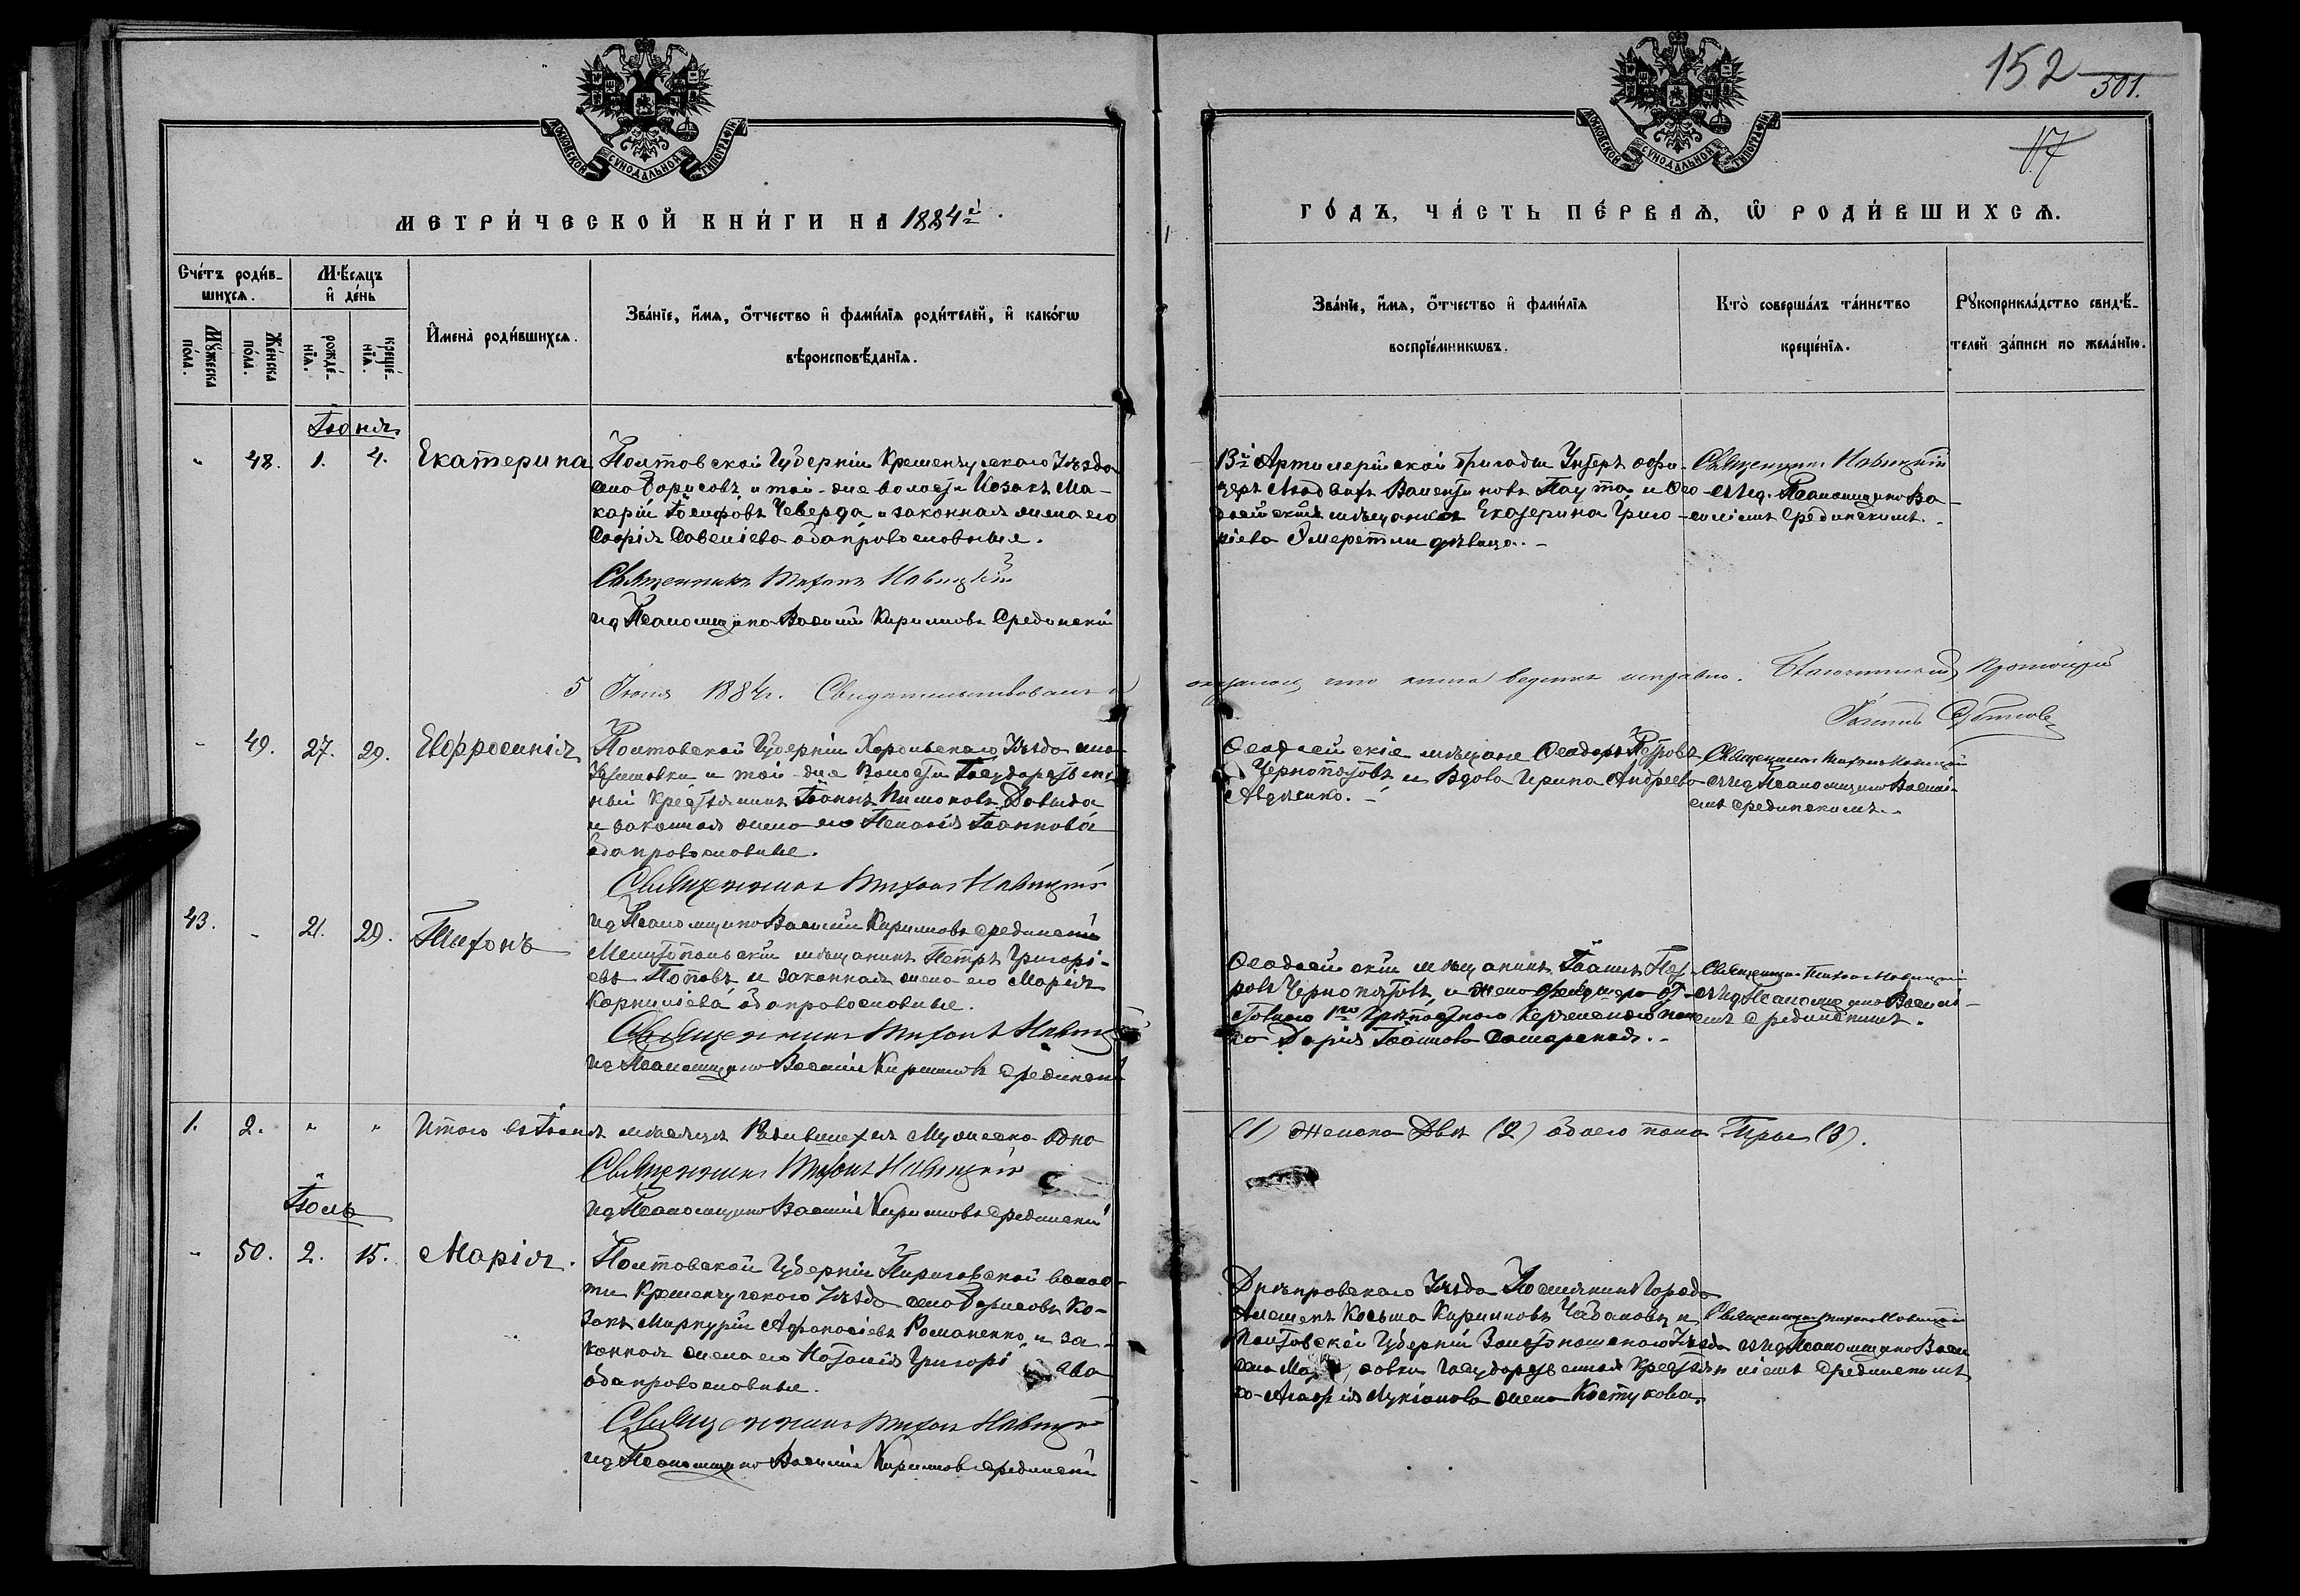 152
501.
17
МОСКОВСКОЙ СѴНОДАЛЬНОЙ ТИПОГРАФІИ
МОСКОВСКОЙ СѴНОДАЛЬНОЙ ТИПОГРАФІИ
МЕТРИ́ЧЕСКОЙ КНИ́ГИ НА 1884й
ГО́ДЪ, ЧА́СТЬ ПЕ́РВАѦ, Ѡ РОДИ́ВШИХСѦ.
Сче́тъ роди́в-
шихсѧ.
Мѣ́сѧцъ
и҆ де́нь
Мꙋ́жеска
пола.
Же́нска
по́ла.
рожде́-
нїѧ.
креще́-
нїѧ.
И҆мена̀ роди́вшихсѧ.
Зва́нїе, и҆́мѧ, ѻ҆́тчество и҆ фами́лїѧ роди́телей, и҆ како́гѡ
вѣроисповѣ́данїѧ.
Зва́нїе, и҆́мѧ, ѻ҆́тчество и҆ фами́лїѧ
воспрїе́мникѡвъ.
Кто̀ соверша́лъ та́инство
креще́нїѧ.
Рꙋкоприкла́дство свидѣ́-
телей за́писи по жела́нїю.
Іюня
" 48. 1. 4. Екатерина
Полтовской Губерніи Кременчугского Уѣзда
села Борисовъ и той-же волости Козакъ Ма-
карій Іосифовъ Чеверда и законная жена его
Софія Савеліева обаправославные.
Священникъ Тихонъ Новицкій
ид Псаломщика Василій Кириловъ Срединскій
13й Артилерійской бригады Унтеръ офи-
церъ Людвигъ Валентиновъ Паута и Ѳео-
досійская мѣщанка Екатерина Григо-
ріева дѣвица.-
Священникъ Новицкій
съ ид. Псаломщика Ва-
силіемъ Срединскимъ.
5 Іюня 1884г. Свидѣтельствовалъ и
оказалось что книга ведется исправно. Благочинный Протоіерей
- 49. 27. 29. Евфросинія
Полтовской Губерніи Хорольского Уѣзда села
и той-же Волости Государствен-
ный Крестьянинъ Іоаннъ Пимоновъ Довыда
и законная жена его Пелагія Іоаннова
обаправославные.
Священникъ Тихонъ Новицкій
ид Псаломщика Василій Кириловъ Срединскій
Ѳеодосійскіе мѣщане Ѳеодоръ Петровъ
Чернопятовъ и Вдова Ирина Андреева
Авдѣенко.-
Священникъ Тихонъ Новицкій
съ ид Псаломщика Василі-
емъ Срединскимъ.
43. - 21. 29. Тихонъ
Мелитопольскій мѣщанинъ Петръ Григорі-
евъ Поповъ и законная жена его Марія
Корниліева обаправославные.
Священникъ Тихонъ Новицкій
ид Псаломщика Василій Кириловъ Срединскій
Ѳеодосійскій мѣщанинъ Іоаннъ Пет-
ровъ Чернопятовъ и жена фельдшера от-
ставного 1го Крѣпостного Керченского пол
ка Дарія Іоаннова Самарская.-
Священникъ Тихонъ Новицкій
съ ид Псаломщика Василі-
емъ Срединскимъ.
1. 2. " " Итого въ Іюнѣ мѣсяцѣ Родившихся Мужеска одно
(1) женска Двѣ (2) обоего пола Трое (3).
Священникъ Тихонъ Новицкій
ид Псаломщика Василій Кириловъ Срединскій
Іюль
- 50. 2. 15. Марія.
Полтовской Губерніи Пироговской волос-
ти Кременчугского Уѣзда села Борисовъ Ко-
закъ Меркурій Афонасіевъ Романенко и за-
конная жена его Наталія Григорі ева
обаправославные.
Священникъ Тихонъ Новицкій
ид Псаломщика Василій Кириловъ Срединскій
Днѣпровского Уѣзда Поселянинъ Города
Алешекъ Косьма Кириловъ Чабановъ и
Полтовской Губерніи Золотоношского Уѣзда
села Ма совки Государственная Крестьян
ка Агафія Лукіанова жена Костукова.
Священникъ Тихонъ Новицкій
съ ид Псаломщика Васи
ліемъ Срединскимъ